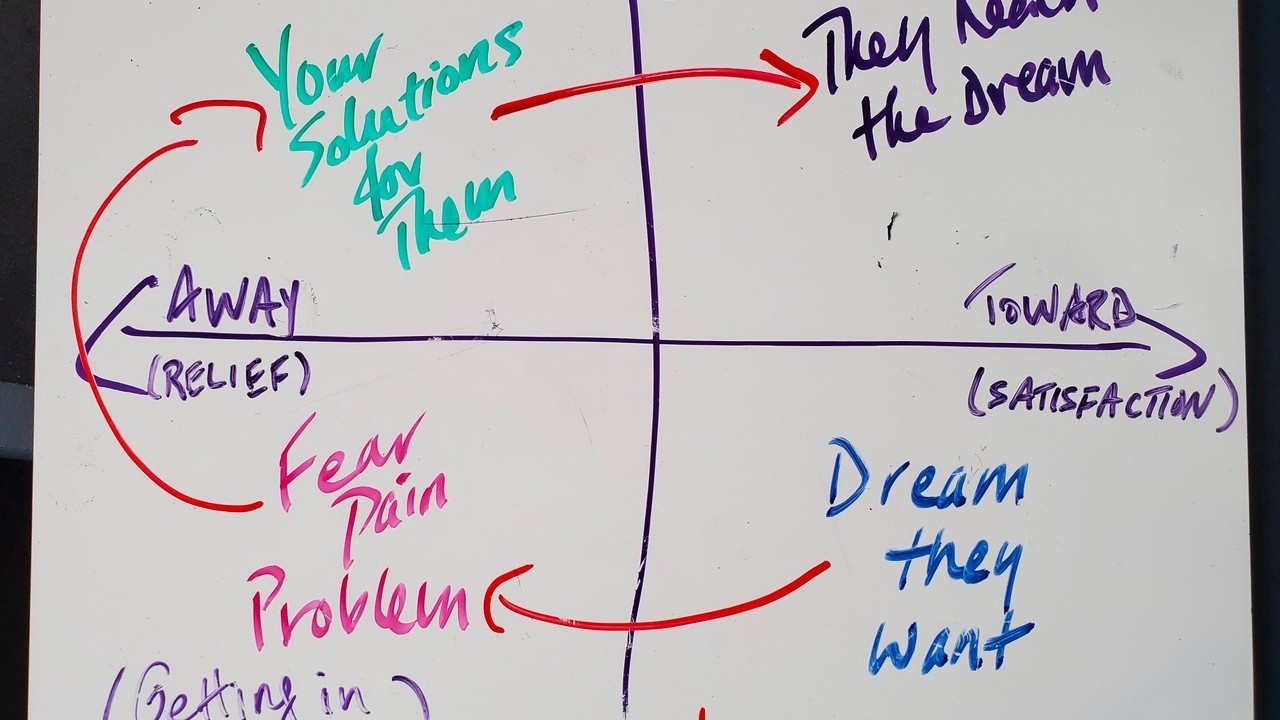 Your
Solutions
for
Them
They Reach
the Dream
AWAY
(RELIEF)
TOWARD
(SATISFACTION)
Fear
Pain
Problem
(Getting in
)
Dream
they
want